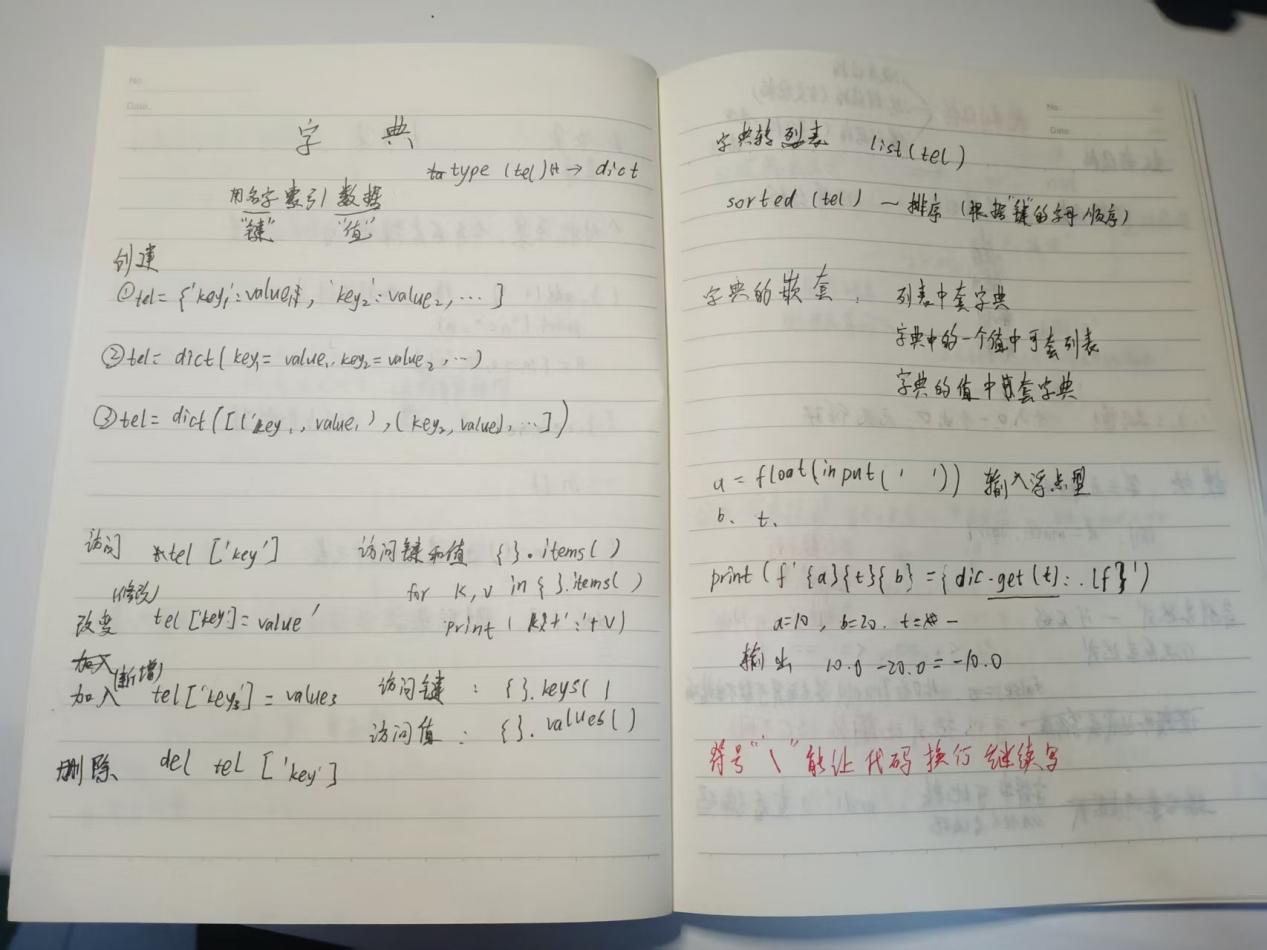 No.
Date.
字典
type (tel) → dict
用名字索引数据
"键" "值"
创建
①tel= {'key1':value1, 'key2':value2, ...]
②tel= dict(key1= value1, key2=value2, ...)
③tel= dict([('key1, value1), (key2, value2), ...])
访问 tel ['key'] 访问键和值 { }.items( )
for k, v in { }.items( )
(修改)
改变 tel ['key'] = value' print( k+':'+v)
加入
(新增)
加入 tel['key3'] = value3 访问键 : { }.keys( )
访问值 : { }. values( )
删除 del tel ['key']
No.
Date
字典转列表 list(tel)
sorted (tel) ~ 排序 (根据"键"的字母顺序)
字典的嵌套: 列表中套字典
字典中的一个值中可套列表
字典的值中嵌套字典
a = float(input(' ')) 输入浮点型
b、t、
print (f' {a}{t}{b} = {dic.get(t):.1f}')
a=10, b=20. t= −
输出 10.0 -20.0 = -10.0
符号"\"能让代码换行继续写